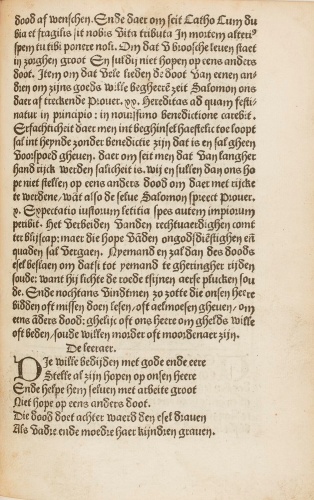 dood af wenschen. Ende daer om seit Catho Cum du
bia et fragilis sit nobis vita tributa In mortem alteri⁹
spem tu tibi ponere noli. Om dat v broosche leuen staet
in zorghen groot En suldij niet hopen op eens anders
doot. Item om dat vele lieden de doot van eenen an-
dren om zijns goeds wille begheerē zeit Salomon ons
daer af treckende Prouer. xx. Hereditas ad quam festi-
natur in principio: in nouissimo benedictione carebit.
Erfachticheit daer men int beghinsel haestelic toe loopt
sal int heynde zonder benedictie zijn dat is en sal gheen
voorspoed gheuen. daer om seit men dat van langher
hand rijck werden salicheit is. wij en sullen dan ons ho
pe niet stellen op eens anders dood om daer met rijcke
te werdene, wāt also de selue Salomon spreect Prouer.
x. Expectatio iustorum letitia spes autem impiorum
peribit. Het verbeiden vanden rechtuaerdighen comt
ter blijscap: maer die hope vādē ongodsdiēstighen eñ
quaden sal vergaen. Nyemand en zal dan des doods
esel beslaen om datsi tot yemand te gheringher rijden
soude: want hij lichte de roede tsijnen aerse plucken sou
de. Ende nochtans vindtmen zo zotte die onsen heere
bidden oft missen doen lesen/ oft aelmoesen gheuen/ om
eens āders dood: ghelijc oft ons heere om ghelds wille
oft beden/soude willen morder oft moordenaer zijn.
De leeraer.
Die wille bedijden met gode ende eere
Stelle al zijn hopen op onsen heere
Ende helpe hem seluen met arbeite groot
Niet hope op eens anders doot.
Die dood doet achter waerd den esel drauen
Als vadre ende moedre haer kijndren grauen.